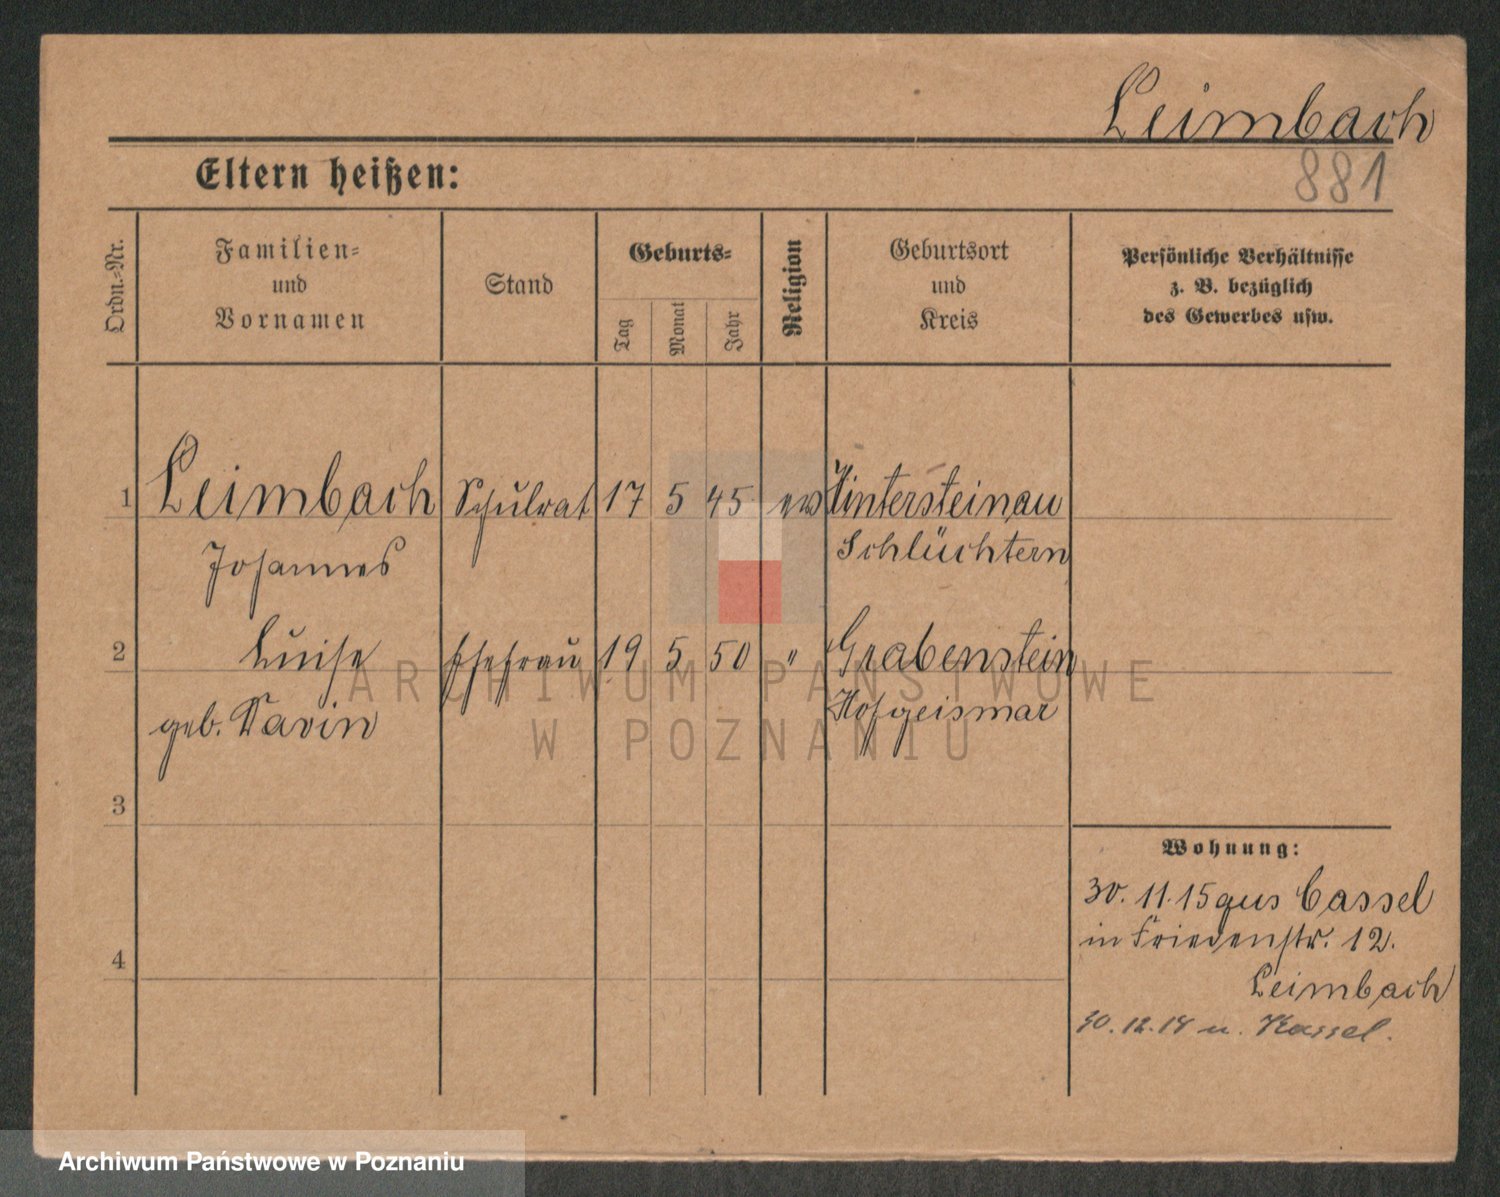 Leimbach
881
Eltern heißen:
Ordn.-Nr.
Familien-
und
Vornamen
Stand
Geburts-
Tag
Monat
Jahr
Religion
Geburtsort
und
Kreis
Persönliche Verhältnisse
z. B. bezüglich
des Gewerbes usw.
1 Leimbach Schulrat 17 5 45 ev Hintersteinau
Johannes Schlüchtern
2 Luise Ehefrau 19 5 50 " Grabenstein
geb. Davin Hofgeismar
3
4
Wohnung:
30. 11. 15 aus Cassel
in Friedenstr. 12.
Leimbach
30. 12. 18 n. Kassel.
ARCHIWUM PAŃSTWOWE
W POZNANIU
Archiwum Państwowe w Poznaniu